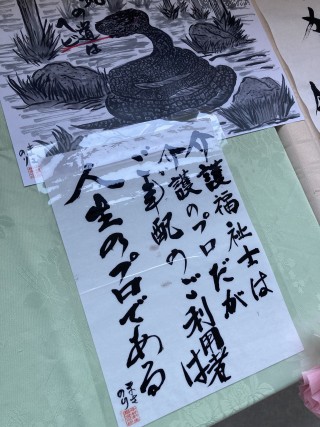 の道は
介護福祉士は
介護のプロだが
ご年配のご利用者は
人生のプロである
のり